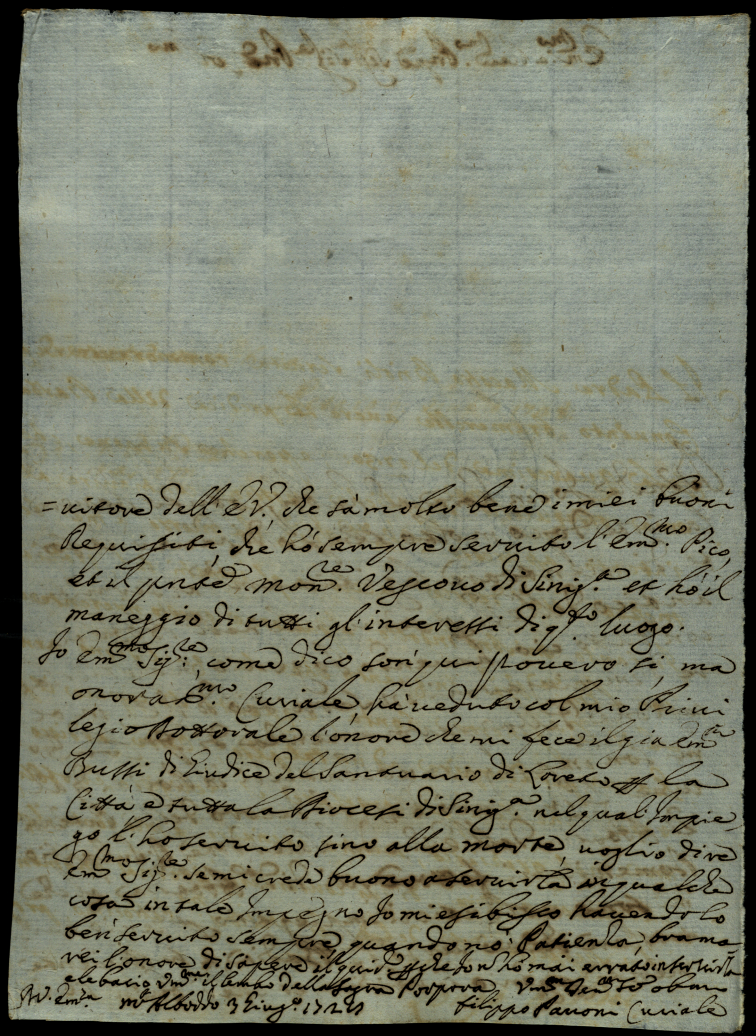 =uitore dell' E.V. che sà molto bene i miei buoni
Requisiti, che hò sempre seruito l'Em.mo Pico,
et il pnte Mon.re Vescouo di Sinig.a et hò il
maneggio di tutti gl'interessi di q.to luogo.
Io Em.mo Sig.re come dico son qui pouero si, ma
onorat.mo Curiale hà ueduto col mio Priui
legio Dottorale l'onore che mi fece il già Em.
Bussi di Giudice del Santuario di Loreto per la
Città e tutta la Diocesi di Sinig.a nel qual Impie,
go l'hò seruito sino alla morte, uoglio dire
Em.mo Sig.re se mi crede buono a seruirla in qualche
cosa in tale Impegno Io mi esibisco hauendolo
ben seruito sempre, quando nò Patienza, brama
rei l'onore di sapere il quid per che Io n hò mai errato in seruirla
e le bacio um.te il lembo della Sagra Porpora
D.V. Em.za M. Alboddo 3 Giug.o
Filippo Pauoni Curiale